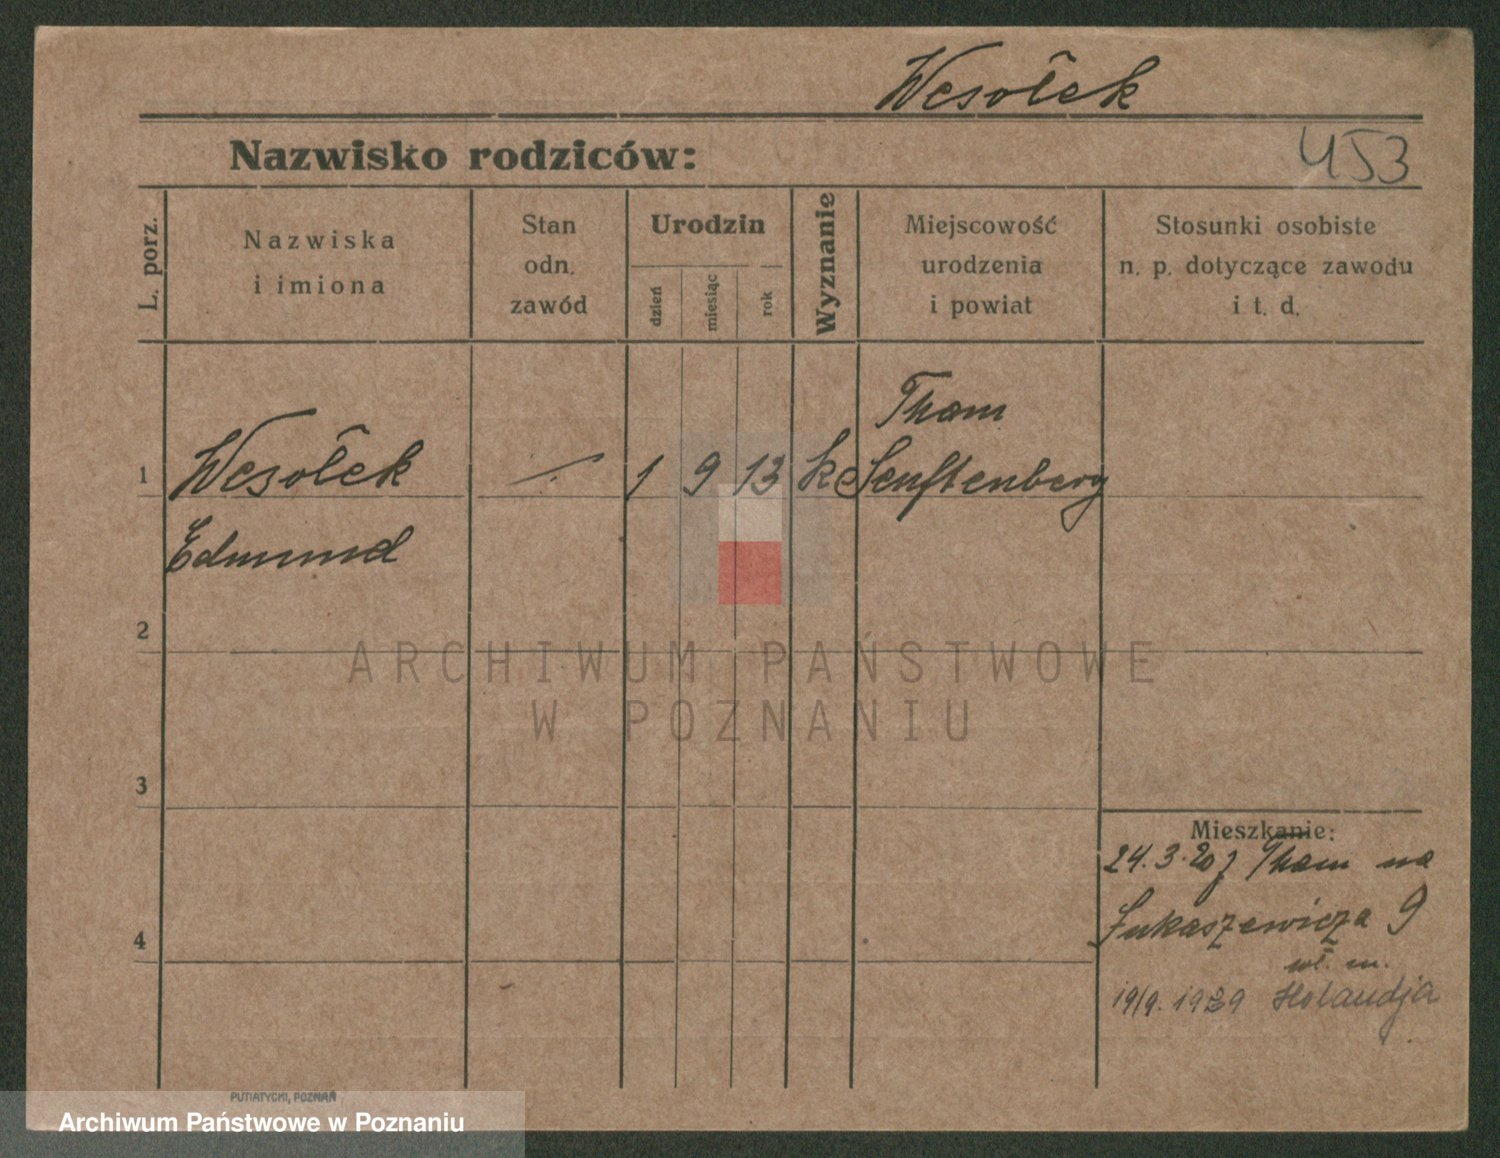 Wesołek
Nazwisko rodziców:
453
L. porz.
Nazwiska
i imiona
Stan
odn.
zawód
Urodzin
dzień
miesiąc
rok
Wyznanie
Miejscowość
urodzenia
i powiat
Stosunki osobiste
n. p. dotyczące zawodu
i t. d.
Tham
1 Wesołek 1 9 13 k Senftenberg
Edmund
2
ARCHIWUM PAŃSTWOWE
W POZNANIU
3
Mieszkanie:
24.3.20 z Tham na
4
Łukaszewicza 9
wł. m.
19/9. 1929 Holandja
PUTIATYCKI, POZNAŃ
Archiwum Państwowe w Poznaniu